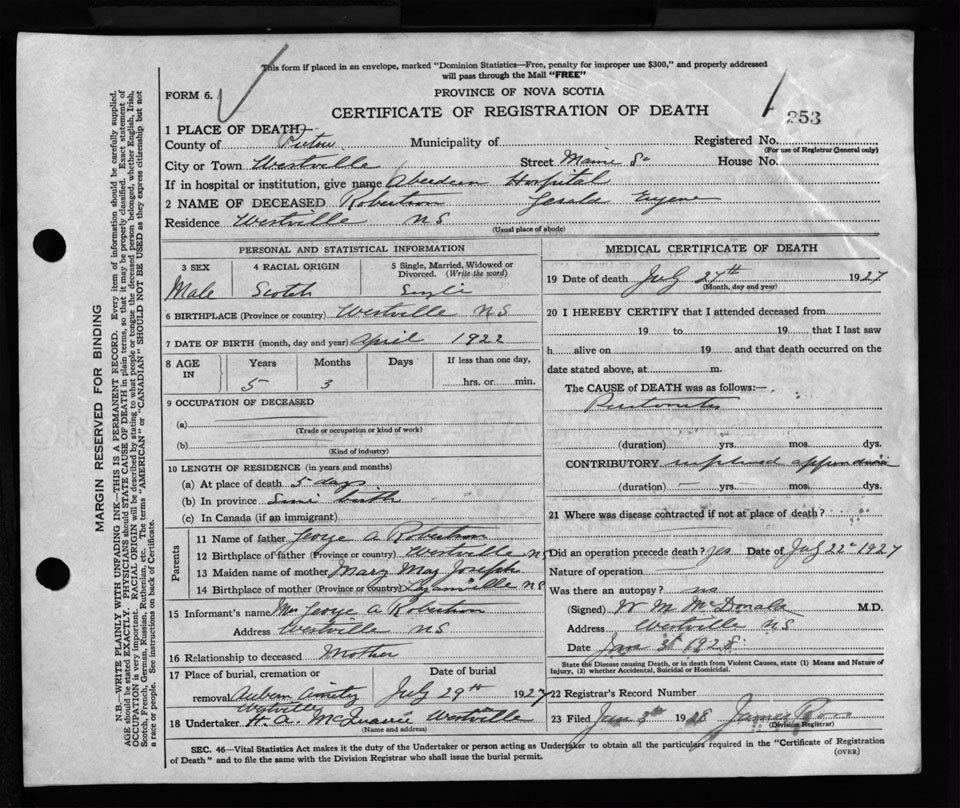 This form if placed in an envelope, marked "Dominion Statistics—Free, penalty for improper use $300," and properly addressed
will pass through the Mail "FREE"
FORM 6.
PROVINCE OF NOVA SCOTIA
CERTIFICATE OF REGISTRATION OF DEATH
253
1 PLACE OF DEATH—
County of Pictou Municipality of Registered No.
(For use of Registrar General only)
City or Town Westville Street Maine St House No.
If in hospital or institution, give name Aberdeen Hospital
2 NAME OF DECEASED Robertson Gerald Eugene
Residence Westville NS
(Usual place of abode)
PERSONAL AND STATISTICAL INFORMATION
3 SEX 4 RACIAL ORIGIN 5 Single, Married, Widowed or Divorced. (Write the word)
Male Scotch Single
6 BIRTHPLACE (Province or country) Westville NS
7 DATE OF BIRTH (month, day and year) April 1922
8 AGE IN Years Months Days If less than one day,
5 3 hrs. or min.
9 OCCUPATION OF DECEASED
(a)
(Trade or occupation or kind of work)
(b)
(Kind of industry)
10 LENGTH OF RESIDENCE (in years and months)
(a) At place of death 5 days
(b) In province Since birth
(c) In Canada (if an immigrant)
Parents
11 Name of father George A Robertson
12 Birthplace of father (Province or country) Westville NS
13 Maiden name of mother Mary May Joseph
14 Birthplace of mother (Province or country) NS
15 Informant's name Mrs George A Robertson
Address Westville NS
16 Relationship to deceased Mother
17 Place of burial, cremation or Date of burial
removal Auburn Cemetry July 29th 1927
Westville
18 Undertaker H. A. McQuarrie Westville
(Name and address)
MEDICAL CERTIFICATE OF DEATH
19 Date of death July 27th 1927
(Month, day and year)
20 I HEREBY CERTIFY that I attended deceased from
19 to 19 that I last saw
h alive on 19 and that death occurred on the
date stated above, at m.
The CAUSE of DEATH was as follows:—
Peritonitis
(duration) yrs. mos. dys.
CONTRIBUTORY ruptured appendix
(duration) — yrs. mos. dys.
21 Where was disease contracted if not at place of death?
Did an operation precede death? yes Date of July 22nd 1927
Nature of operation
Was there an autopsy? no
(Signed) W M McDonald M.D.
Address Westville NS
Date Jan 3d 1928
State the Disease causing Death, or in death from Violent Causes, state (1) Means and Nature of
Injury, (2) whether Accidental, Suicidal or Homicidal.
22 Registrar's Record Number
23 Filed Jan 3d 1928 James Ross
(Division Registrar)
SEC. 46—Vital Statistics Act makes it the duty of the Undertaker or person acting as Undertaker to obtain all the particulars required in the "Certificate of Registration
of Death" and to file the same with the Division Registrar who shall issue the burial permit.
(OVER)
MARGIN RESERVED FOR BINDING
N.B.—WRITE PLAINLY WITH UNFADING INK—THIS IS A PERMANENT RECORD. Every item of information should be carefully supplied.
AGE should be stated EXACTLY. PHYSICIANS should STATE CAUSE OF DEATH in plain terms, so that it may be properly classified. Exact statement of
OCCUPATION is very important. RACIAL ORIGIN will be described by stating to what people or tongue the deceased person belonged, whether English, Irish,
Scotch, French, German, Russian, Ruthenian, etc. The terms "AMERICAN" or "CANADIAN" SHOULD NOT BE USED as they express citizenship but not
a race or people. See instructions on back of Certificate.